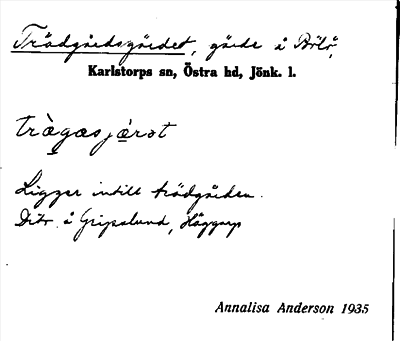 Trädgårdsgärdet, gärde å Bölö,
Karlstorps sn, Östra hd, Jönk. l.
tràgasjæ̀rət
Ligger intill trädgården.
Ditr. å Gripslund, Häggarp
Annalisa Anderson 1935